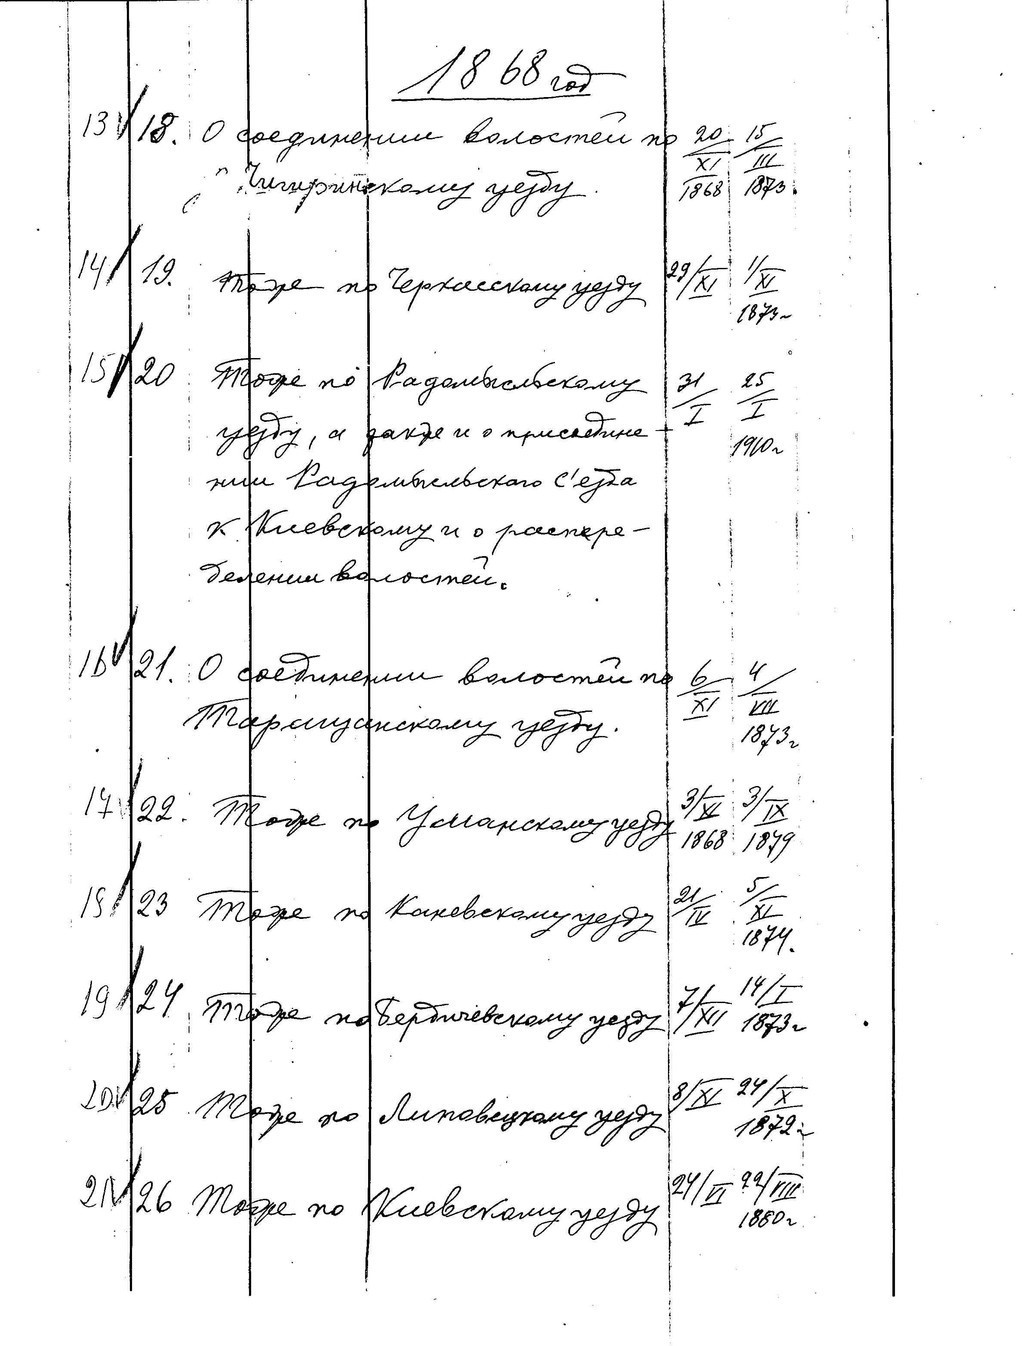 1868 год
13 18. О соединении волостей по 20/XI 1868 15/III 1873.
Чигиринскому уезду.
14 19. Тоже по Черкасскому уезду 29/XI 1/XI 1873г
15 20 Тоже по Радомысльскому 31/I 25/I 1910г
уезду, а также и о присоедине-
нии Радомысльского с'езда
к Киевскому и о распре-
делении волостей.
16 21. О соединении волостей по 6/XI 4/VIII 1873г
Таращанскому уезду.
17 22. Тоже по Уманскому уезду 3/XI 1868 3/IX 1879
18 23 Тоже по Каневскому уезду 21/IV 5/XI 1874.
19 24 Тоже по Бердичевскому уезду 7/XII 14/I 1873г
20 25 Тоже по Липовецкому уезду 8/XI 24/X 1872г
21 26 Тоже по Киевскому уезду 24/VI 22/VIII 1880г